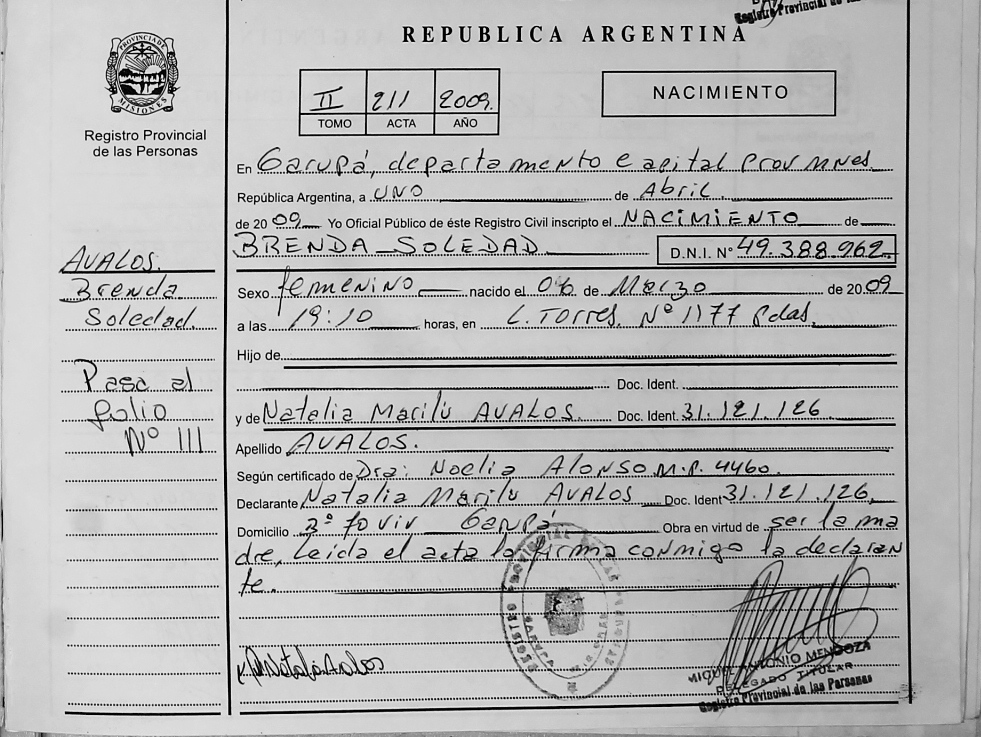 Registro Provincial de las
REPUBLICA ARGENTINA
PROVINCIA DE MISIONES
Registro Provincial
de las Personas
II 211 2009.
TOMO ACTA AÑO
NACIMIENTO
En Garupá, departamento capital Prov Mnes.
República Argentina, a UNO de Abril
de 2009 Yo Oficial Público de éste Registro Civil inscripto el NACIMIENTO de
BRENDA SOLEDAD D.N.I. N° 49.388.962
Sexo femenino nacido el 06 de Marzo de 2009
a las 19:10 horas, en L. Torres. N° 1177 Pdas.
Hijo de
Doc. Ident.
y de Natalia Marilú AVALOS. Doc. Ident. 31.121.126
Apellido AVALOS.
Según certificado de Dra: Noelia Alonso M.P. 4460.
Declarante Natalia Marilu AVALOS Doc. Ident 31.121.126,
Domicilio Garupá Obra en virtud de ser la ma
dre, Leida el acta la firma conmigo la declaran
te.
AVALOS.
Brenda
Soledad.
Pasa al
folio
N° 111
Natalia Avalos
MIGUEL ANTONIO MENDOZA
DELEGADO TITULAR
Registro Provincial de las Personas